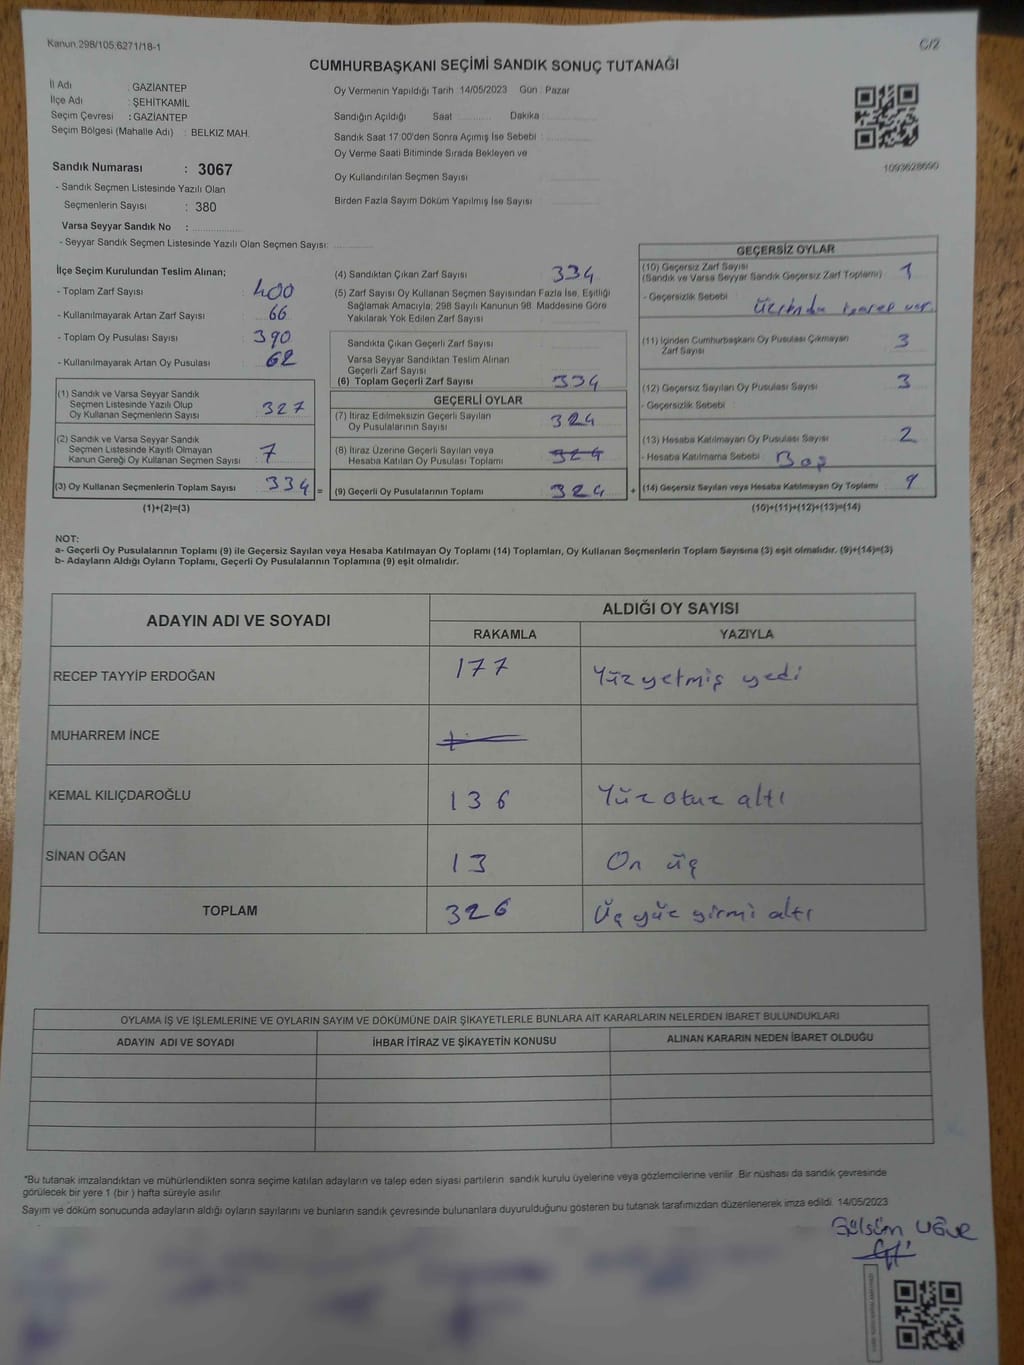 Kanun.298/105,6271/18-1
C/2
CUMHURBAŞKANI SEÇİMİ SANDIK SONUÇ TUTANAĞI
İl Adı : GAZİANTEP
İlçe Adı : ŞEHİTKAMİL
Seçim Çevresi : GAZİANTEP
Seçim Bölgesi (Mahalle Adı) : BELKIZ MAH.
Sandık Numarası : 3067
- Sandık Seçmen Listesinde Yazılı Olan
Seçmenlerin Sayısı : 380
Varsa Seyyar Sandık No :
- Seyyar Sandık Seçmen Listesinde Yazılı Olan Seçmen Sayısı:
Oy Vermenin Yapıldığı Tarih :14/05/2023 Gün : Pazar
Sandığın Açıldığı Saat Dakika
Sandık Saat 17.00'den Sonra Açımış İse Sebebi :
Oy Verme Saati Bitiminde Sırada Bekleyen ve
Oy Kullandırılan Seçmen Sayısı
Birden Fazla Sayım Döküm Yapılmış İse Sayısı
1093628690
İlçe Seçim Kurulundan Teslim Alınan;
- Toplam Zarf Sayısı : 400
- Kullanılmayarak Artan Zarf Sayısı : 66
- Toplam Oy Pusulası Sayısı : 390
- Kullanılmayarak Artan Oy Pusulası : 62
(1) Sandık ve Varsa Seyyar Sandık
Seçmen Listesinde Yazılı Olup
Oy Kullanan Seçmenlerin Sayısı 327
(2) Sandık ve Varsa Seyyar Sandık
Seçmen Listesinde Kayıtlı Olmayan
Kanun Gereği Oy Kullanan Seçmen Sayısı 7
(3) Oy Kullanan Seçmenlerin Toplam Sayısı 334 =
(1)+(2)=(3)
(4) Sandıktan Çıkan Zarf Sayısı 334
(5) Zarf Sayısı Oy Kullanan Seçmen Sayısından Fazla İse, Eşitliği
Sağlamak Amacıyla; 298 Sayılı Kanunun 98. Maddesine Göre
Yakılarak Yok Edilen Zarf Sayısı
Sandıkta Çıkan Geçerli Zarf Sayısı
Varsa Seyyar Sandıktan Teslim Alınan
Geçerli Zarf Sayısı
(6) Toplam Geçerli Zarf Sayısı 334
GEÇERLİ OYLAR
(7) İtiraz Edilmeksizin Geçerli Sayılan
Oy Pusulalarının Sayısı 324
(8) İtiraz Üzerine Geçerli Sayılan veya
Hesaba Katılan Oy Pusulası Toplamı 324
(9) Geçerli Oy Pusulalarının Toplamı 324 +
GEÇERSİZ OYLAR
(10) Geçersiz Zarf Sayısı
(Sandık ve Varsa Seyyar Sandık Geçersiz Zarf Toplamı) 1
- Geçersizlik Sebebi : Üzerinde işaret var.
(11) İçinden Cumhurbaşkanı Oy Pusulası Çıkmayan
Zarf Sayısı 3
(12) Geçersiz Sayılan Oy Pusulası Sayısı 3
- Geçersizlik Sebebi :
(13) Hesaba Katılmayan Oy Pusulası Sayısı 2
- Hesaba Katılmama Sebebi : Boş
(14) Geçersiz Sayılan veya Hesaba Katılmayan Oy Toplamı 9
(10)+(11)+(12)+(13)=(14)
NOT:
a- Geçerli Oy Pusulalarının Toplamı (9) ile Geçersiz Sayılan veya Hesaba Katılmayan Oy Toplamı (14) Toplamları, Oy Kullanan Seçmenlerin Toplam Sayısına (3) eşit olmalıdır. (9)+(14)=(3)
b- Adayların Aldığı Oyların Toplamı, Geçerli Oy Pusulalarının Toplamına (9) eşit olmalıdır.
ADAYIN ADI VE SOYADI ALDIĞI OY SAYISI
RAKAMLA YAZIYLA
RECEP TAYYİP ERDOĞAN 177 Yüz yetmiş yedi
MUHARREM İNCE
KEMAL KILIÇDAROĞLU 136 Yüz otuz altı
SİNAN OĞAN 13 On üç
TOPLAM 326 Üç yüz yirmi altı
OYLAMA İŞ VE İŞLEMLERİNE VE OYLARIN SAYIM VE DÖKÜMÜNE DAİR ŞİKAYETLERLE BUNLARA AİT KARARLARIN NELERDEN İBARET BULUNDUKLARI
ADAYIN ADI VE SOYADI İHBAR İTİRAZ VE ŞİKAYETİN KONUSU ALINAN KARARIN NEDEN İBARET OLDUĞU
"Bu tutanak imzalandıktan ve mühürlendikten sonra seçime katılan adayların ve talep eden siyasi partilerin sandık kurulu üyelerine veya gözlemcilerine verilir. Bir nüshası da sandık çevresinde
görülecek bir yere 1 (bir ) hafta süreyle asılır.
Sayım ve döküm sonucunda adayların aldığı oyların sayılarını ve bunların sandık çevresinde bulunanlara duyurulduğunu gösteren bu tutanak tarafımızdan düzenlenerek imza edildi. 14/05/2023
Gülsüm UĞUR